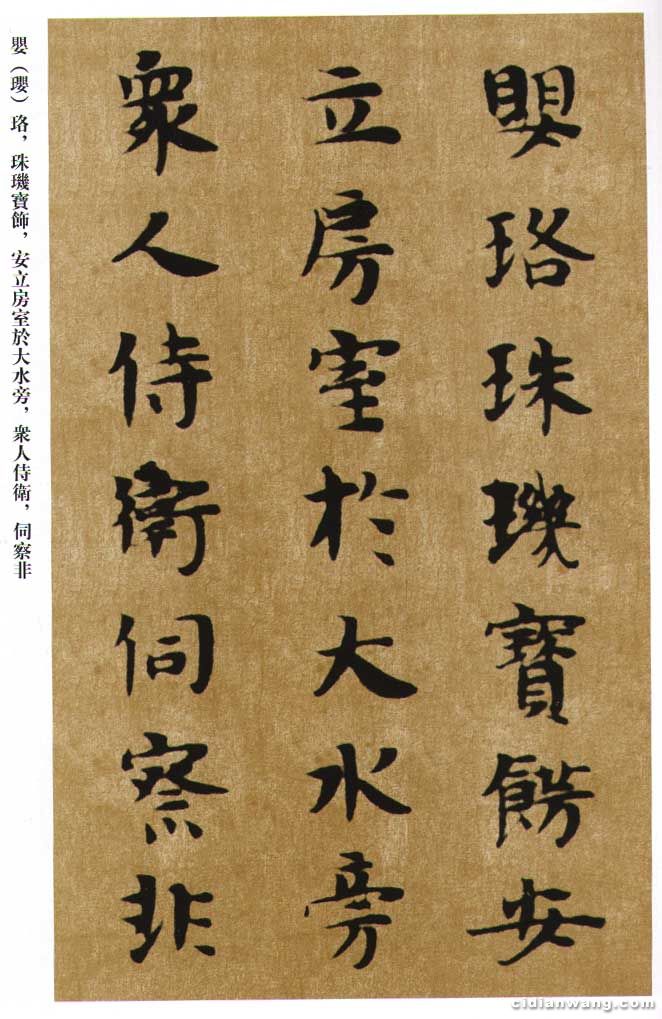 嬰珞珠璣寶飾安
立房室於大水旁
衆人侍衛伺察非
嬰（瓔）珞，珠璣寶飾，安立房室於大水旁，衆人侍衛，伺察非
cidianwang.com